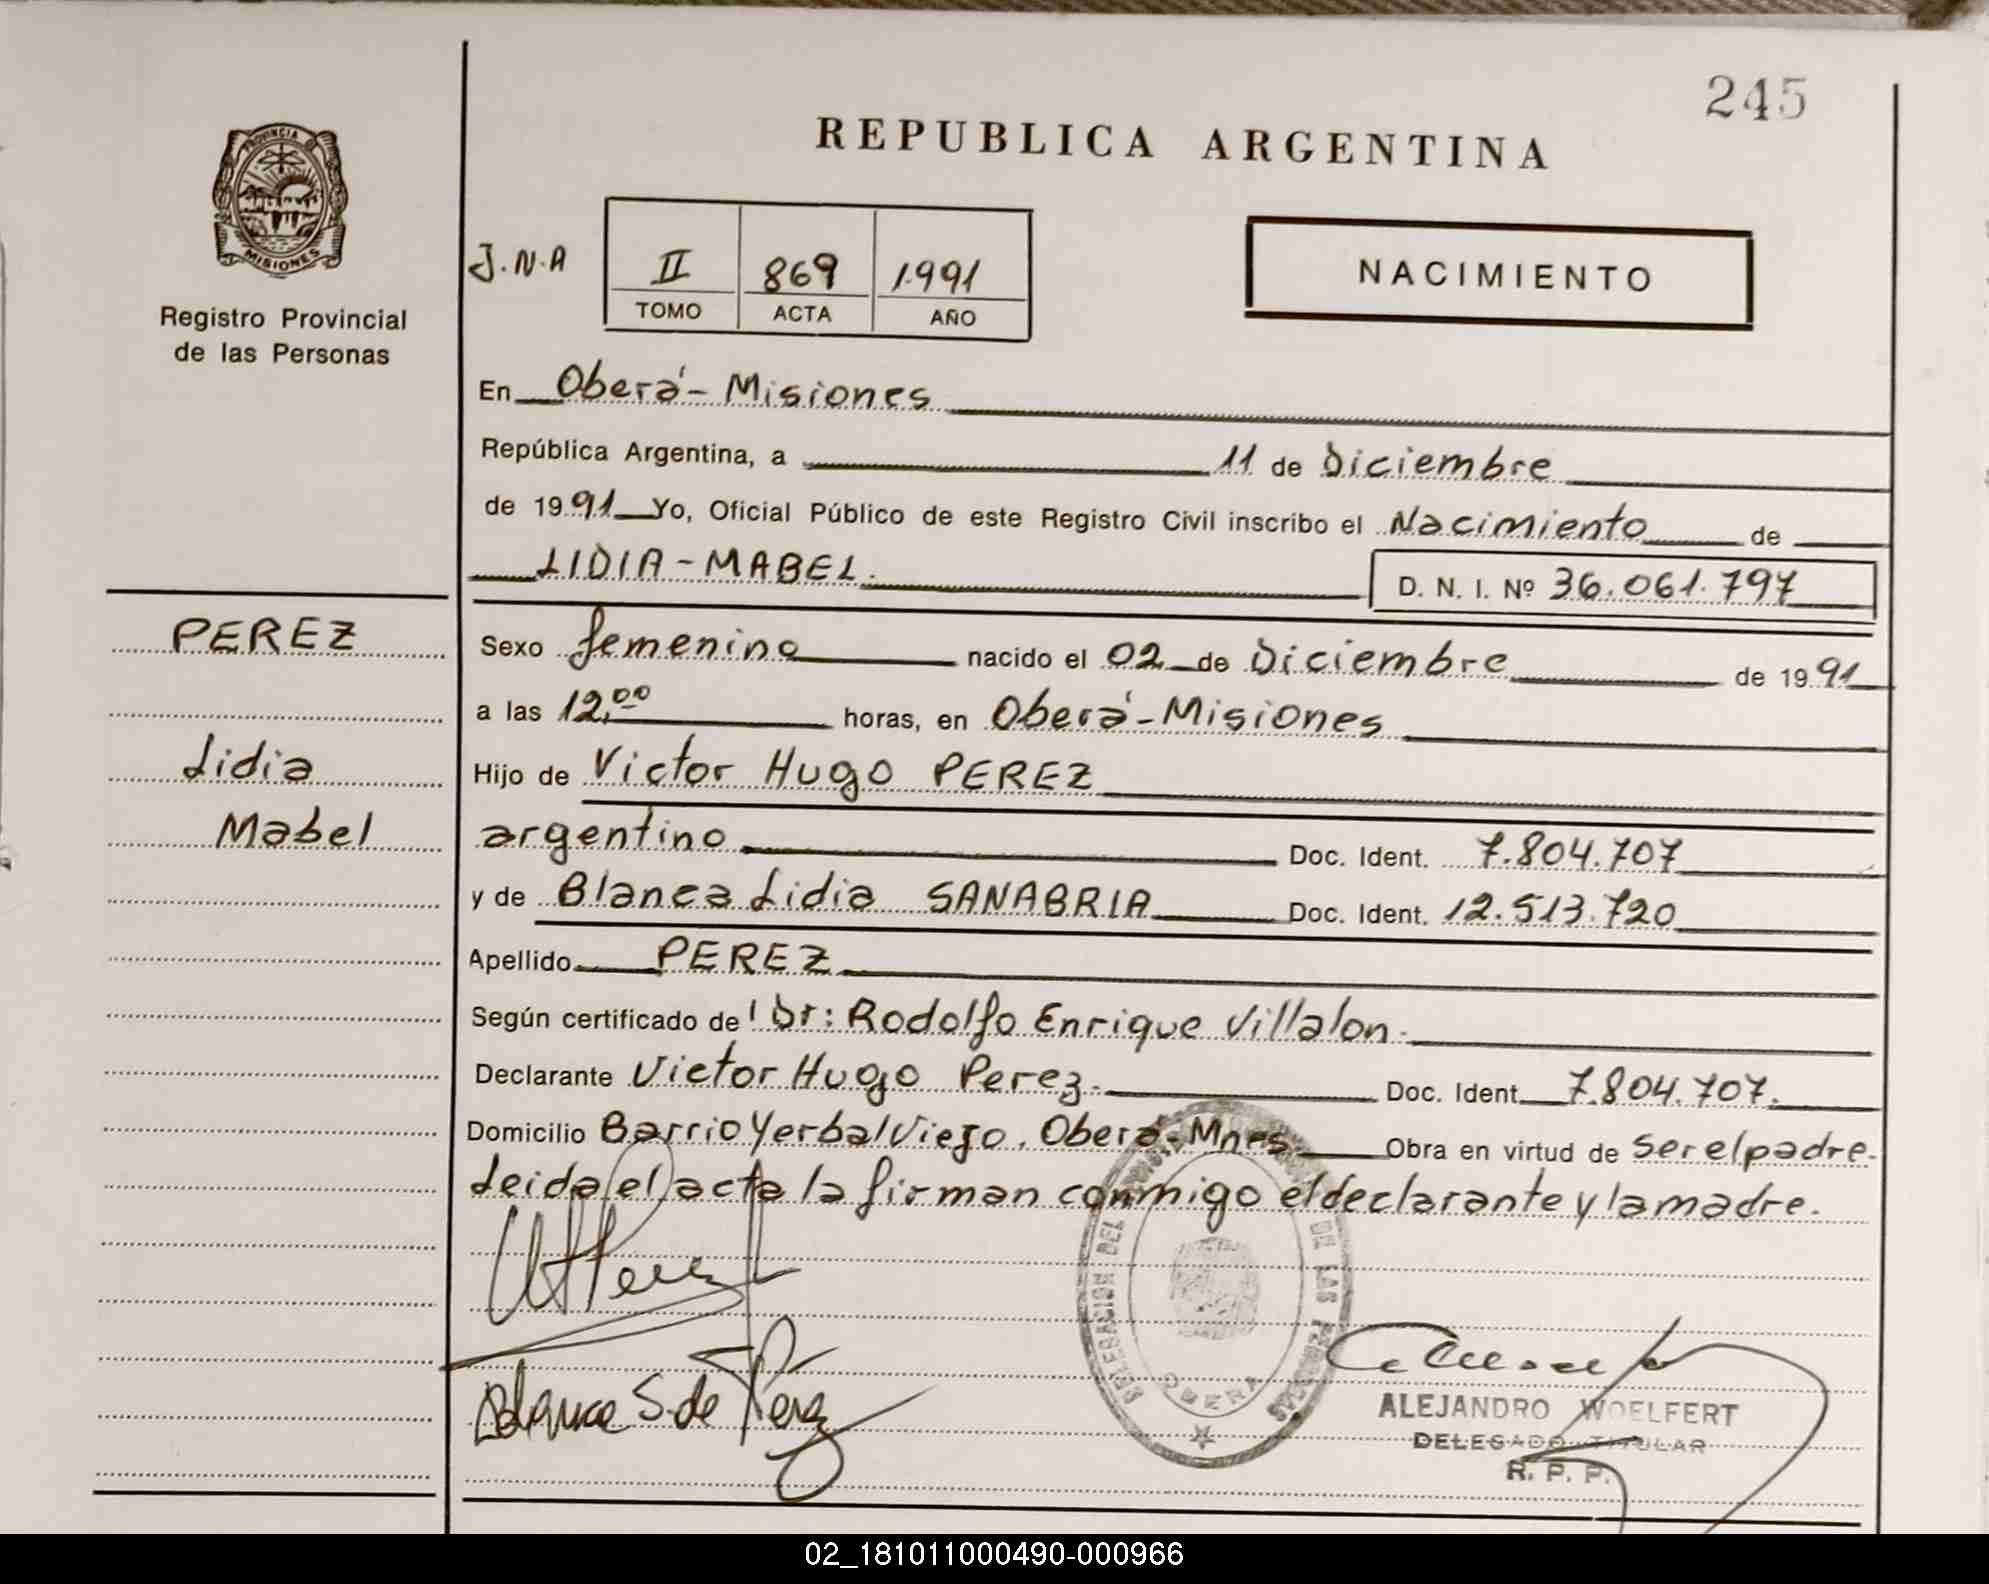 245
REPUBLICA ARGENTINA
PROVINCIA DE
MISIONES
Registro Provincial
de las Personas
J.N.A
II 869 1.991
TOMO ACTA AÑO
NACIMIENTO
En Oberá - Misiones
República Argentina, a 11 de Diciembre
de 1991 Yo, Oficial Público de este Registro Civil inscribo el Nacimiento de
LIDIA - MABEL.
D. N. I. Nº 36.061.797
PEREZ
Lidia
Mabel
Sexo femenino nacido el 02 de Diciembre de 1991
a las 12,00 horas, en Oberá - Misiones
Hijo de Victor Hugo PEREZ
argentino Doc. Ident. 7.804.707
y de Blanca Lidia SANABRIA Doc. Ident. 12.513.720
Apellido PEREZ
Según certificado de l Dr: Rodolfo Enrique Villalon.
Declarante Victor Hugo Perez. Doc. Ident. 7.804.707.
Domicilio Barrio Yerbal Viejo. Oberá - Mnes Obra en virtud de ser el padre.
Leida el acta la firman conmigo el declarante y la madre.
Blanca S. de Perez
DELEGACION DEL DE LAS PERSONAS
OBERA
ALEJANDRO WOELFERT
DELEGADO TITULAR
R. P. P.
02_181011000490-000966